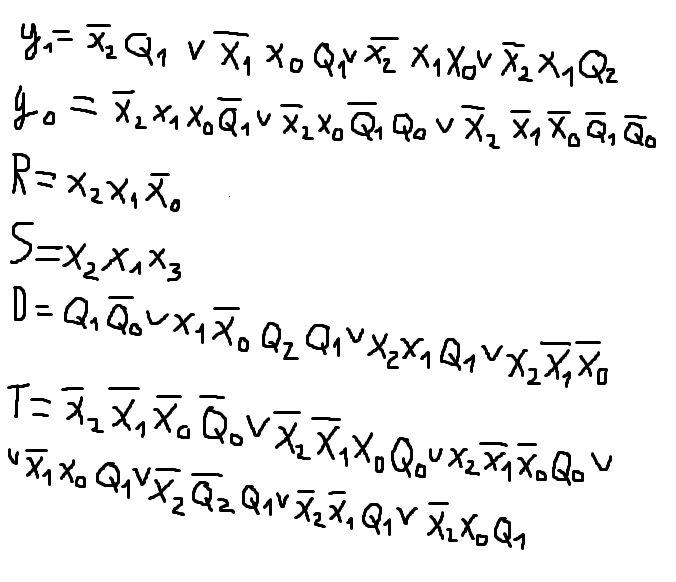 y₁= x̅₂Q₁ ∨ x̅₁ x₀ Q₁∨ x̅₂ x₁x₀∨ x̅₂x₁Q₂
y₀ = x̅₂x₁x₀Q̅₁∨ x̅₂x₀Q̅₁Q₀ ∨ x̅₂ x̅₁x̅₀Q̅₁Q̅₀
R= x₂x₁x̅₀
S=x₂x₁x₃
D= Q₁Q̅₀∨x₁x̅₀ Q₂ Q₁∨x₂x₁Q₁∨x₂x̅₁x̅₀
T= x̅₂x̅₁x̅₀Q̅₀∨x̅₂x̅₁x₀Q₀∨x₂x̅₁x̅₀Q₀∨
∨x̅₁x₀ Q₁∨x̅₂Q̅₂Q₁∨x̅₂x̅₁Q₁∨ x̅₂x₀Q₁